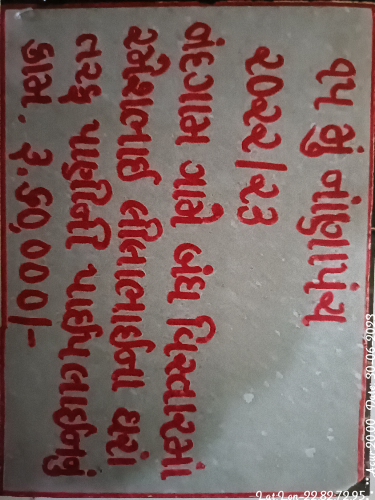 ૧૫ મું નાણાપંચ
૨૦૨૨/૨૩
વંદગામ ગામે બંધ વિસ્તારમાં
રમેશભાઈ લીબાભાઈના ઘરાં
તરફ પાણીની પાઈપલાઈનનું
કામ. રૂ.૬૦,૦૦૦/-